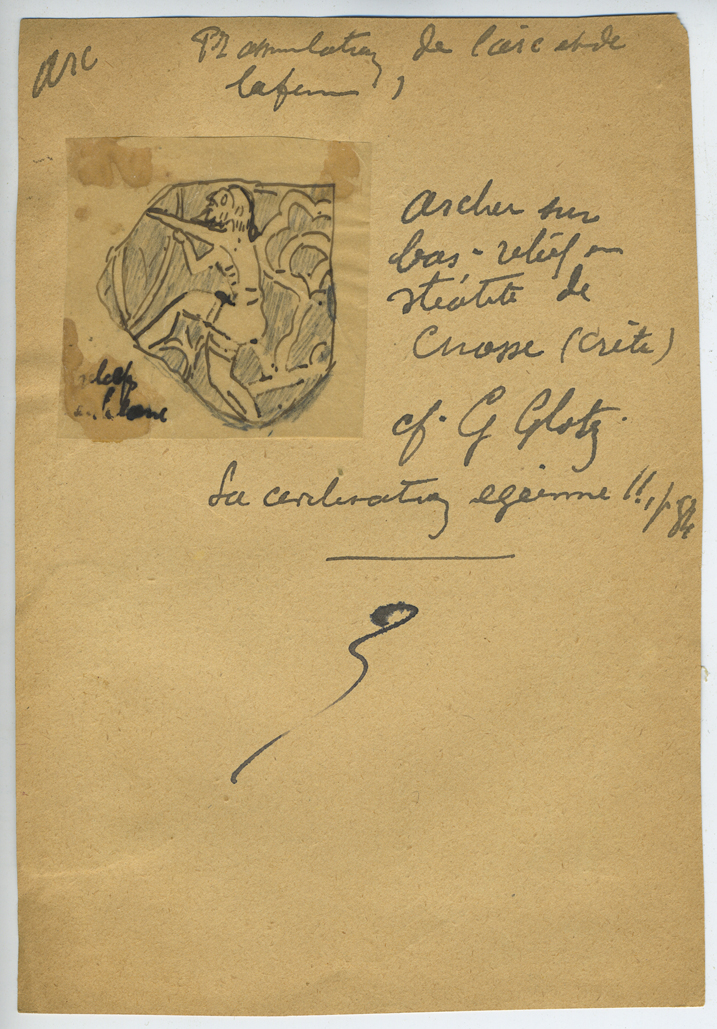 arc
de l'arc et de
la femme,
Archer sur
bas-relief en
stéatite de
Cnosse (Crète)
cf. G Glotz.
La civilisation egéenne !!, p. 84